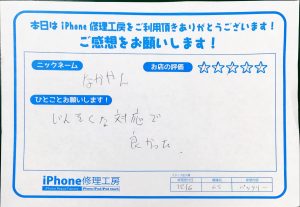 本日は iPhone 修理工房をご利用頂きありがとうございます！
ご感想をお願いします！
ニックネーム
お店の評価 ☆☆☆☆☆
なかやん
ひとことお願いします！
じんそくな対応で
良かった
iPhone修理工房